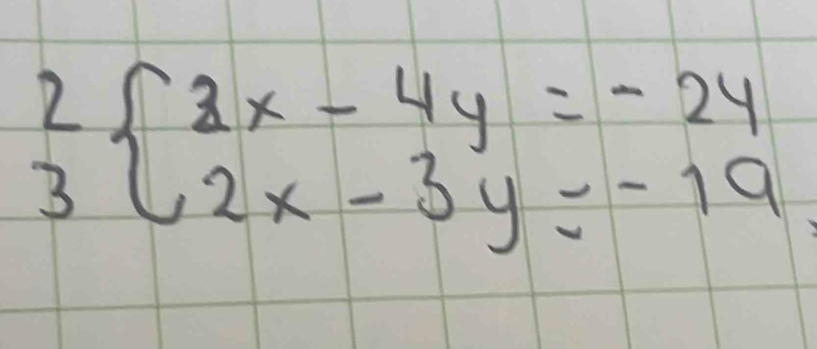 2 { 3x - 4y = - 24
3 { 2x - 3y = - 19.